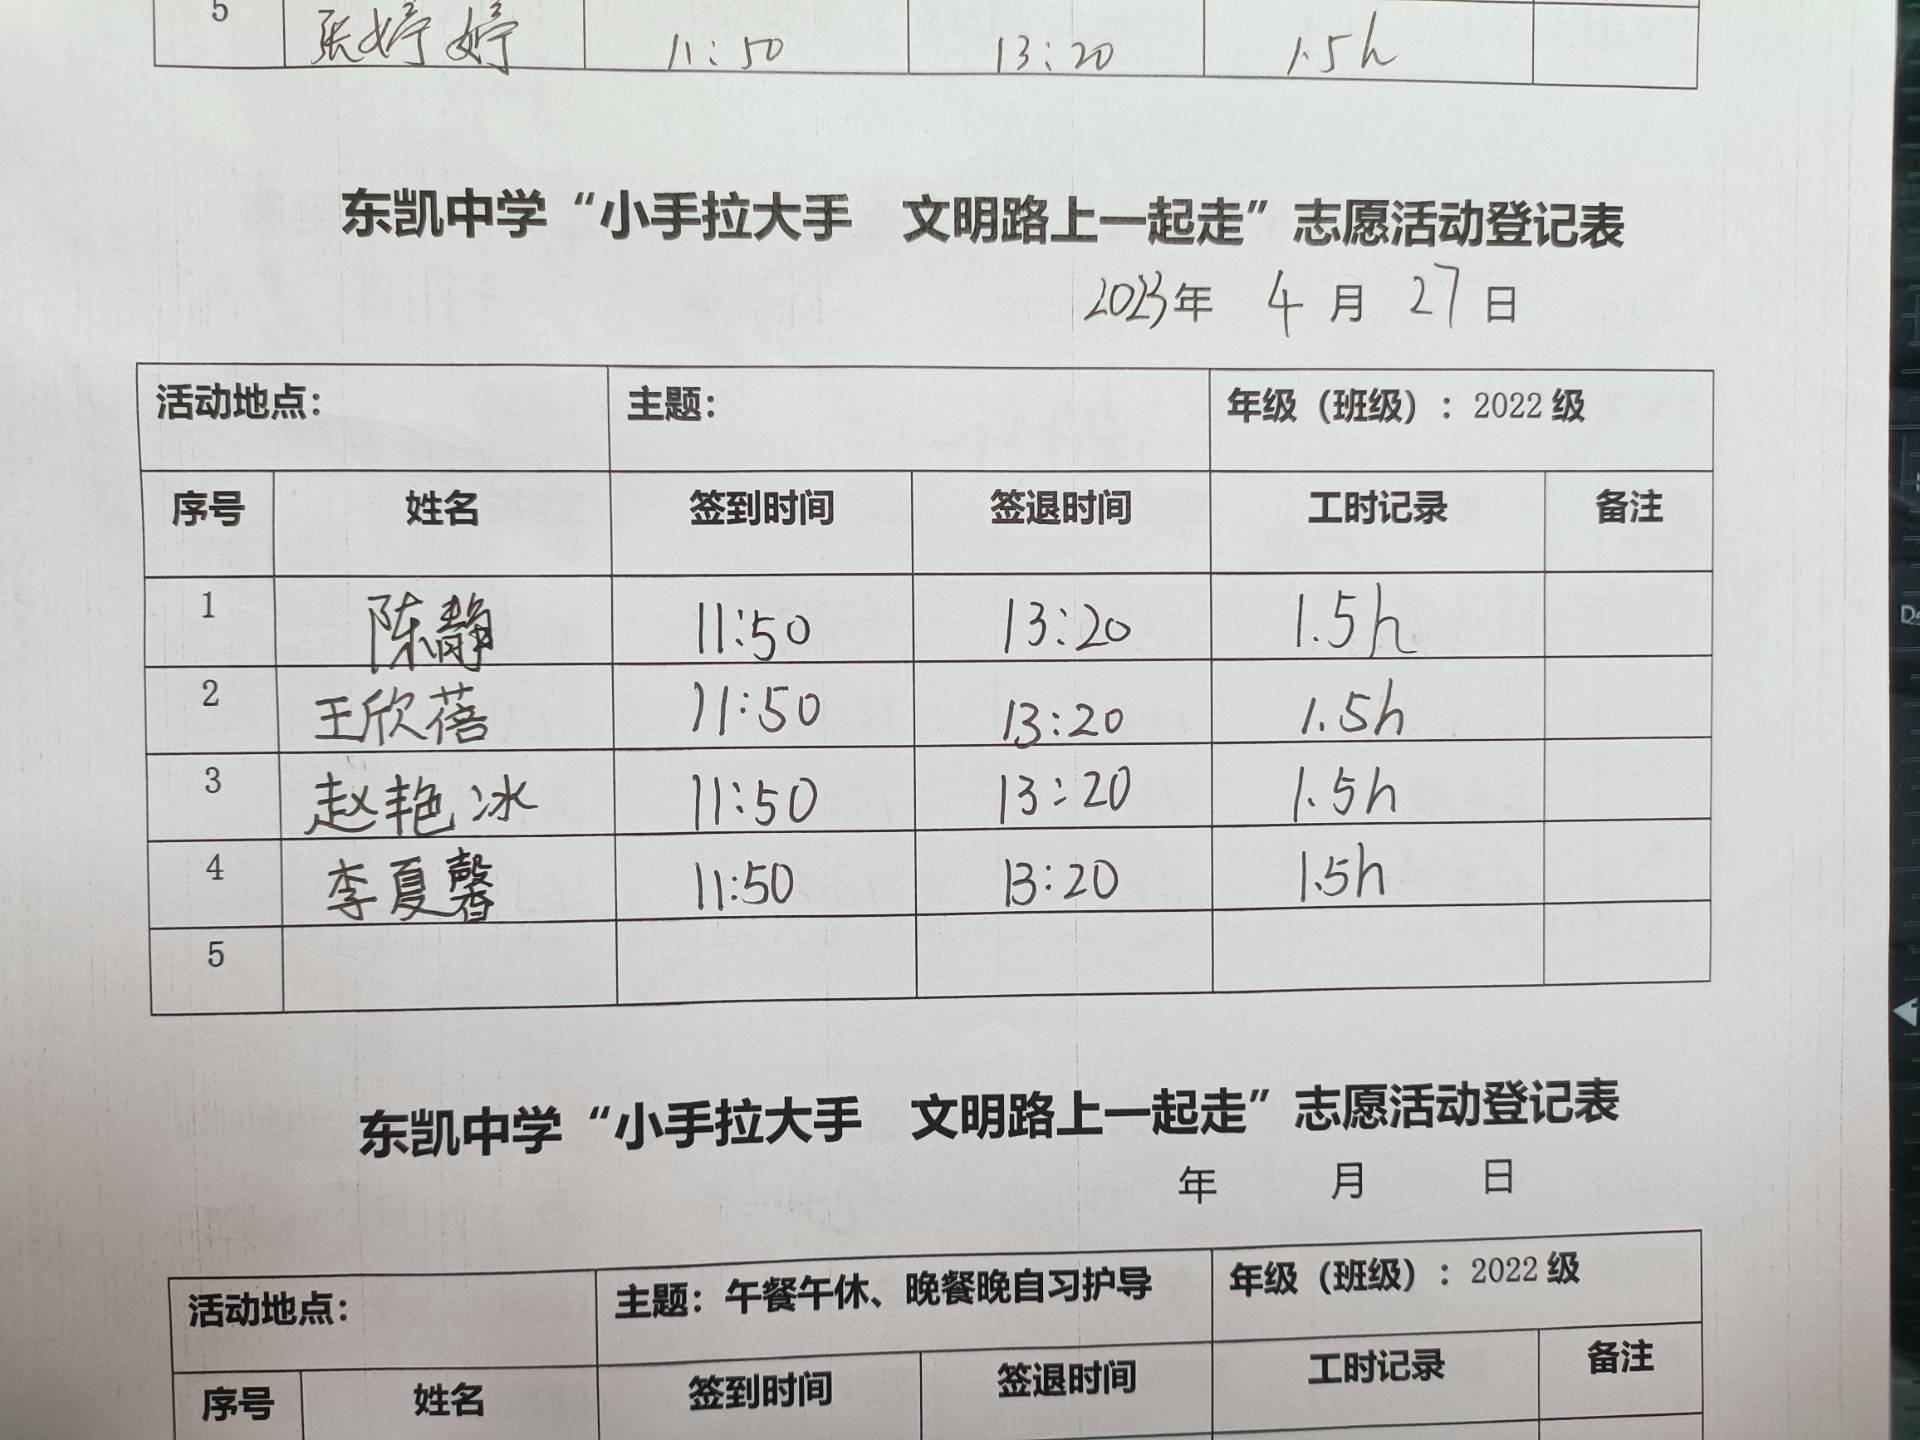 5 张婷婷 11:50 13:20 1.5h
东凯中学“小手拉大手 文明路上一起走”志愿活动登记表
2023年 4月 27日
活动地点： 主题： 年级（班级）：2022级
序号 姓名 签到时间 签退时间 工时记录 备注
1 陈静 11:50 13:20 1.5h
2 王欣蓓 11:50 13:20 1.5h
3 赵艳冰 11:50 13:20 1.5h
4 李夏馨 11:50 13:20 1.5h
5
东凯中学“小手拉大手 文明路上一起走”志愿活动登记表
年 月 日
活动地点： 主题：午餐午休、晚餐晚自习护导 年级（班级）：2022级
序号 姓名 签到时间 签退时间 工时记录 备注